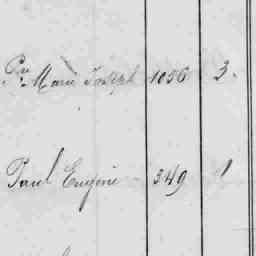 Pre Marie Joseph 1056 3.
Paul Eugène 349 1